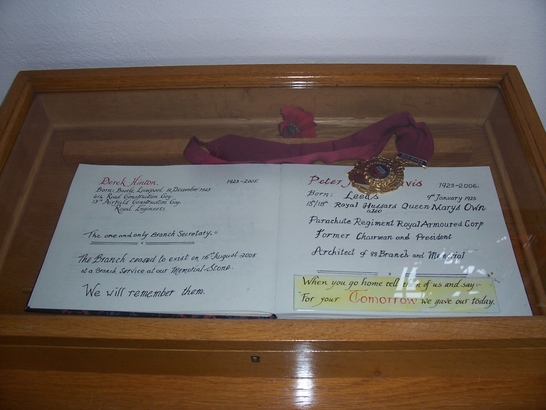 Derek Hinton. 1923-2005.
Born: Bootle Liverpool 12 December 1923
Road Construction Coy.
Airfield Construction Corp.
Royal Engineers
"The one and only Branch Secretary."
The Branch ceased to exist on 15th August 2005
at a Branch Service at our Memorial-Stone.
We will remember them.
Peter 1923-2006.
Born: Leeds January 1923
15/19th Royal Hussars Queen Mary's Own
Parachute Regiment Royal Armoured Corp
Former Chairman and President
Architect of 88 Branch and Memorial
When you go home tell them of us and say-
"For your Comorrow we gave our today.